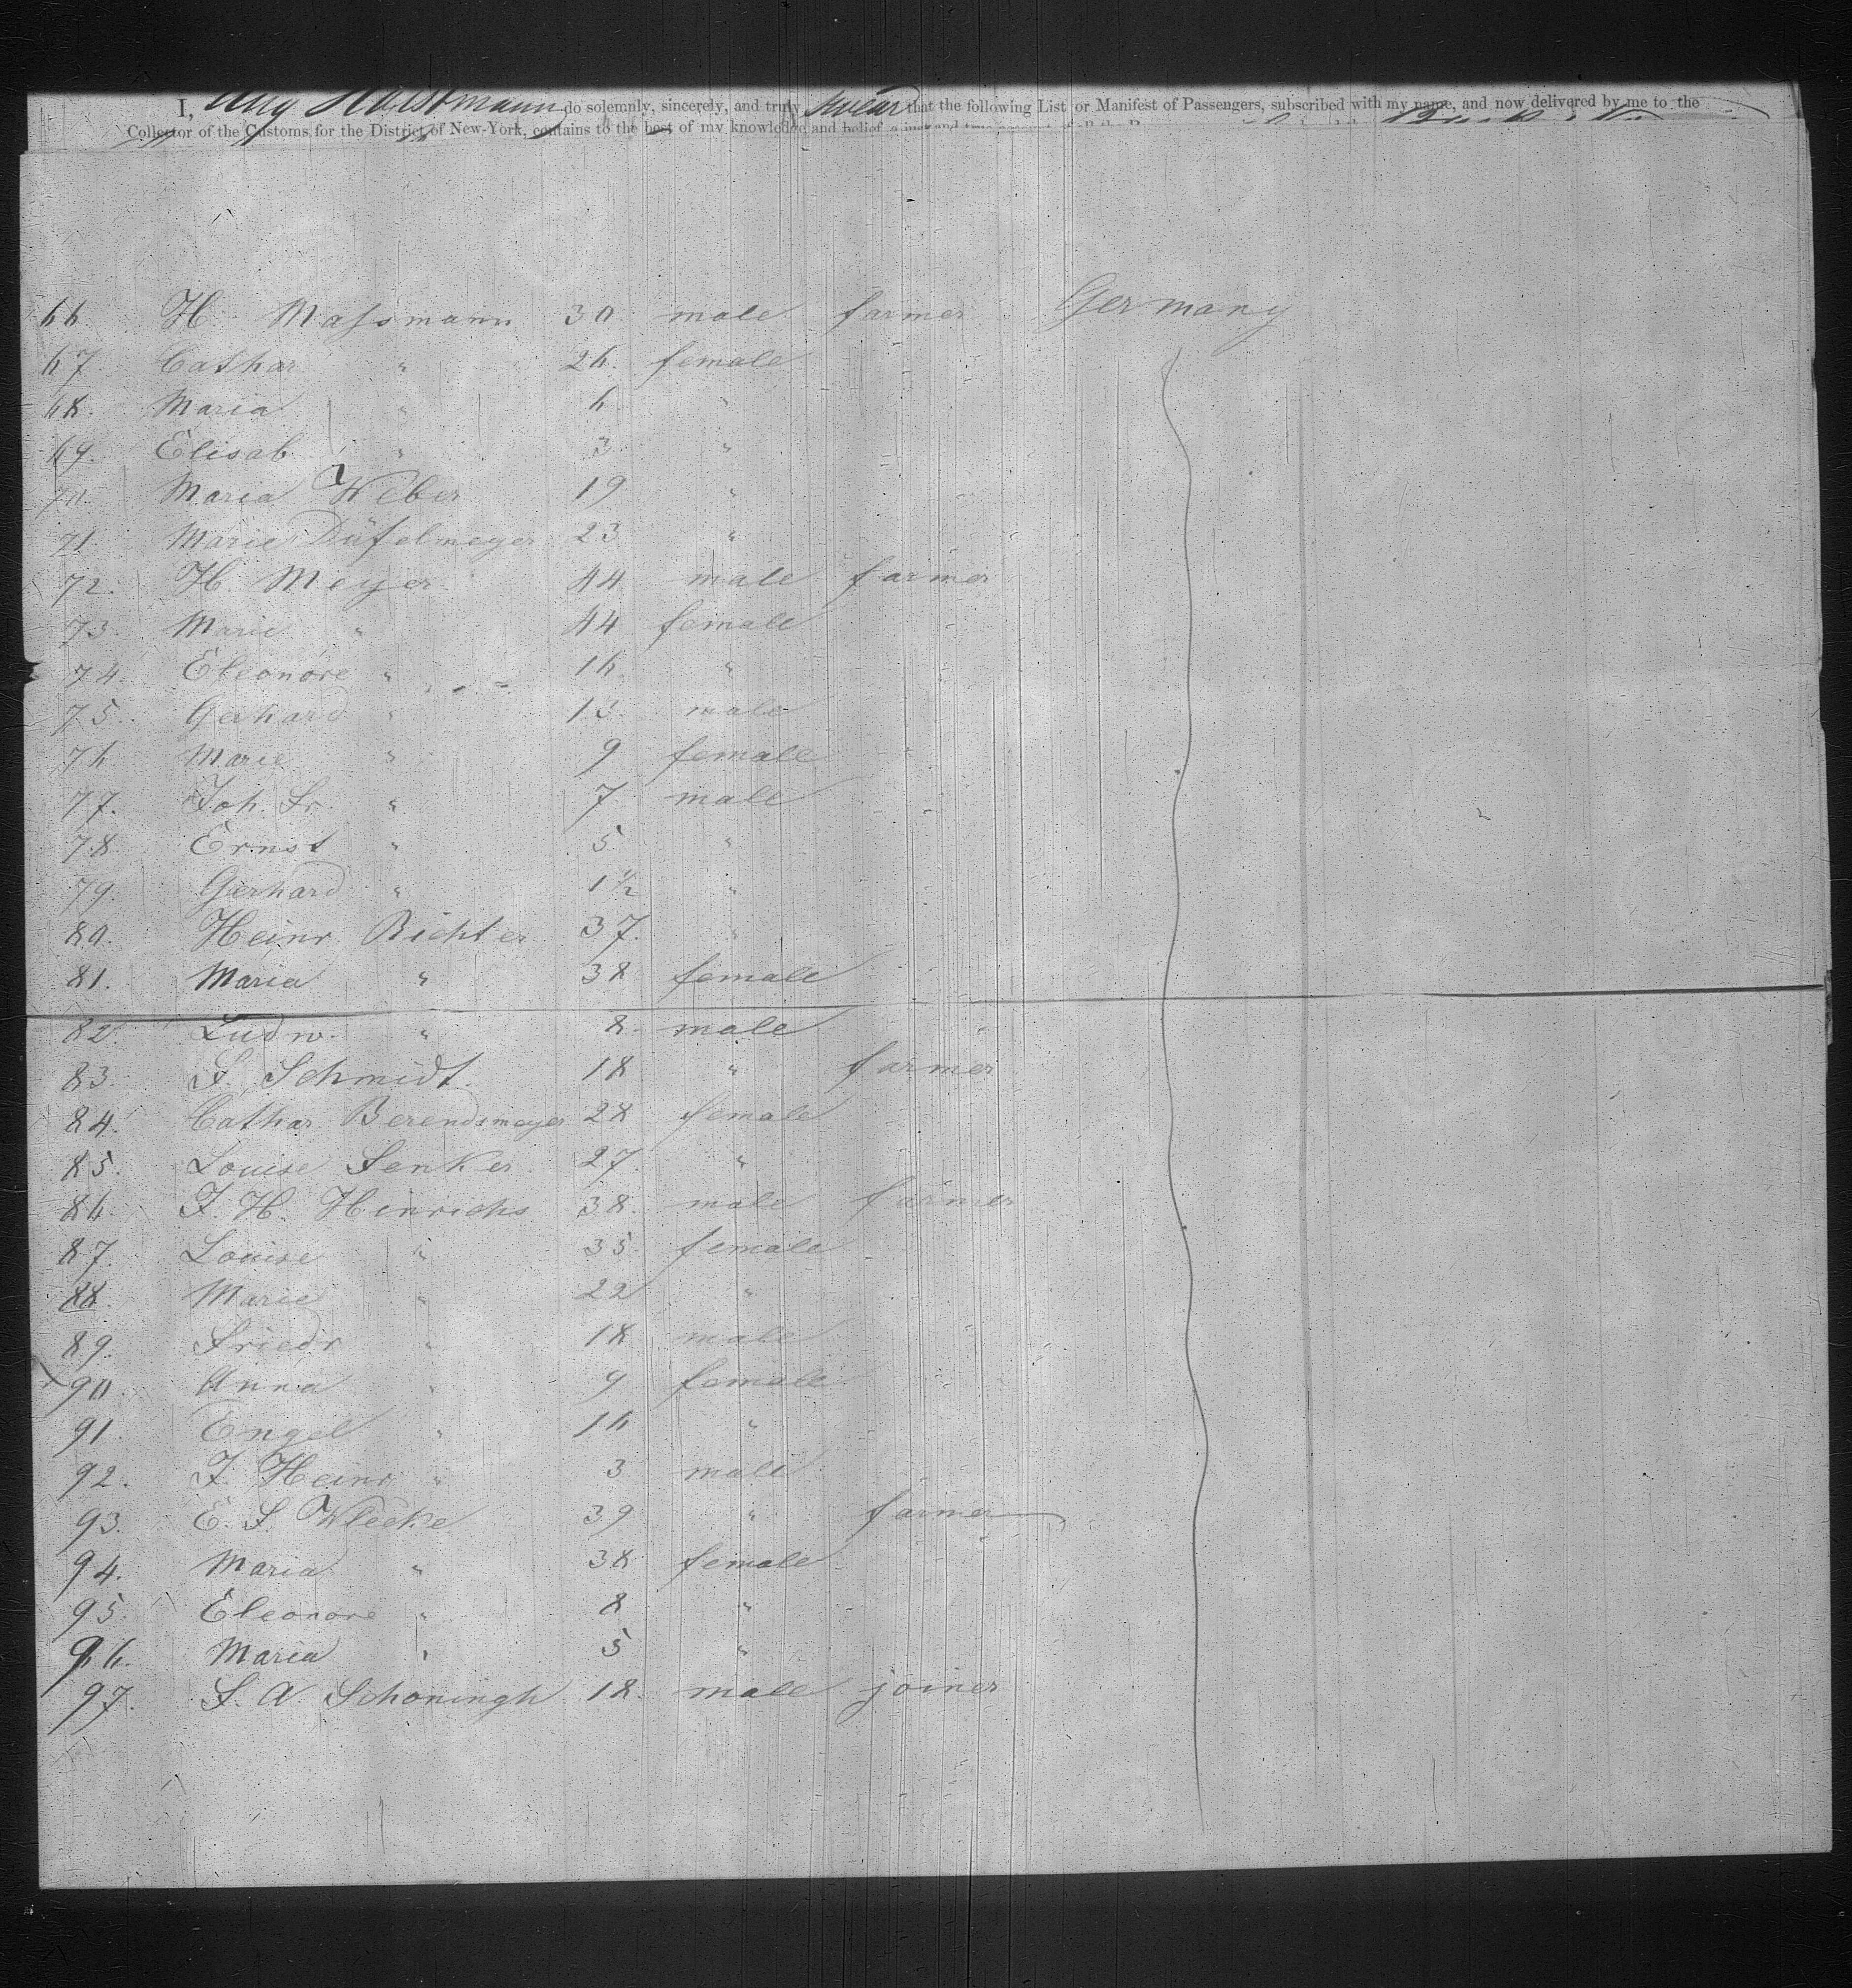 I, Aug Halstmann do solemnly, sincerely, and truly swear that the following List or Manifest of Passengers, subscribed with my name, and now delivered by me to the
Collector of the Customs for the District of New-York, contains to the best of my knowledge and belief, a just and true account of all the
66. H. Maſsmann 30 male farmer Germany
67. Cathar. " 26. female
68. Maria " 6 "
69. Elisab. " 3 "
70. Maria Weber 19 "
71. Marie Düfelmeyer 23 "
72. H. Meyer 44 male farmer
73. Marie " 44 female
74. Eleonore " 16 "
75. Gerhard " 13 male
76. Marie " 9 female
77. Joh. Fr. " 7 male
78. Ernst " 5 "
79. Gerhard " 1 1/2 "
80. Heinr. Richter 37. "
81. Maria " 38 female
82. Ludw. " 8. male
83. F. Schmidt. 18 " farmer
84. Cathar. Berendsmeyer 28 female
85. Louise Fenker 27. "
86. J. H. Hinrichs 38. male farmer
87. Louise " 35 female
88. Marie " 22 "
89. Friedr. " 18 male
90. Anna " 9 female
91. Engel " 16 "
92. J. Heinr. " 3 male
93. E. F. Wlecke 39 " farmer
94. Maria " 38 female
95. Eleonore " 8 "
96. Maria " 5 "
97. F. A. Schoningh 18. male joiner